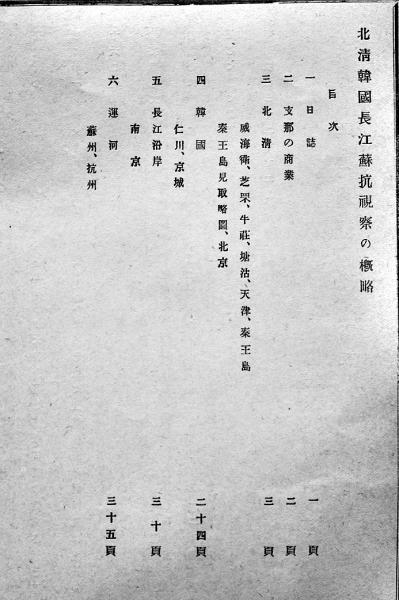 北淸韓國長江蘇抗視察の槪略
目次
一 日誌 一頁
二 支那の商業 二頁
三 北淸 三頁
威海衛、芝罘、牛莊、塘沽、天津、秦王島
秦王島見取略圖、北京
四 韓國 二十四頁
仁川、京城
五 長江沿岸 三十頁
南京
六 運河 三十五頁
蘇州、抗州